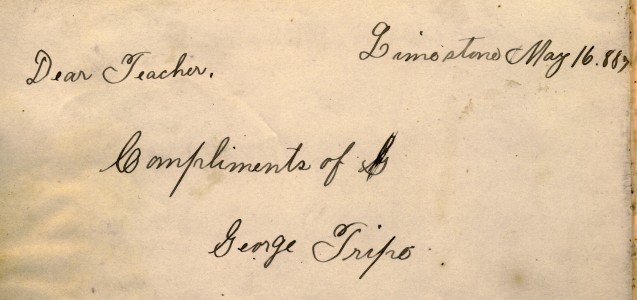 Limestone May 16. 887
Dear Teacher.
Compliments of
George Tripo